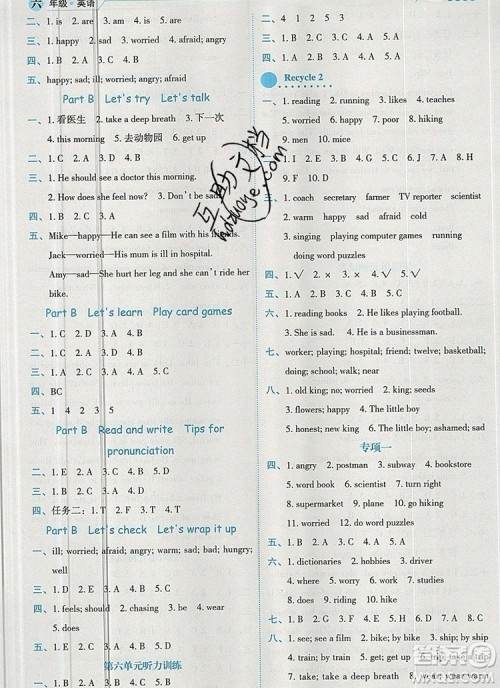 六 年级·英语
二、1. is 2. are 3. are 4. is
三、1. happy 2. sad 3. worried 4. angry
四、1. B 2. B 3. A
五、happy; sad; ill; worried; angry; afraid
Part B Let's try Let's talk
一、1. 看医生 2. take a deep breath 3. 下一次
4. this morning 5. 去动物园 6. get up
二、1. B 2. A 3. C 4. A
四、1. He should see a doctor this morning.
2. How does she feel now? 3. Don't be sad!
五、Mike—happy—He can see a film with his friends.
Jack—worried—His mum is ill in hospital.
Amy—sad—She hurt her leg and she can't ride her
bike.
Part B Let's learn Play card games
一、1. C 2. D 3. A 4. B
三、1. A 2. A 3. C
四、BC
五、1 4 2 3 5
Part B Read and write Tips for
pronunciation
二、1. E 2. A 3. B 4. C 5. D
三、1. B 2. A 3. A 4. B 5. A
四、任务二：1. F 2. T 3. F 4. T 5. F
Part B Let's check Let's wrap it up
一、ill; worried; afraid; angry; warm; sad; bad; hungry;
well
三、1. B 2. D 3. A 4. B 5. C
四、1. feels; should 2. chasing 3. be
4. show 5. wear
五、1. B 2. A 3. E 4. C 5. D
第六单元听力训练
一、1. B 2. A 3. B 4. B 5. C
四、1. B 2. A 3. B 4. A 5. A
Recycle 2
一、1. reading 2. running 3. likes 4. teaches
5. worried 6. happy 7. poor 8. hiring
9. men 10. mice
二、1. C 2. B 3. A 4. B 5. C 6. A 7. C 8. A
9. B 10. B
三、1. coach secretary farmer TV reporter scientist
2. warm happy angry worried afraid
3. singing playing computer games running
doing word puzzles swimming
四、1. ✓ 2. ✓ 3. × 4. × 5. ✓
五、1. C 2. A 3. D 4. B 5. A
六、1. reading books 2. He likes playing football.
3. She is sad. 4. He is a businessman.
七、worker; playing; hospital; friend; twelve; basketball;
doing; school; walk; near
八、1. old king; no; worried 2. king; seeds
3. flowers; happy 4. The little boy
5. honest; new king 6. The little boy; ashamed; sad
专项一
四、1. angry 2. postman 3. subway 4. bookstore
5. word 6. book 7. street
8. supermarket 9. plane 10. driver
11. worried 12. do word puzzles
五、1. C 2. B 3. A 4. D 5. A 6. C
六、1. dictionaries 2. hobbies 3. driver
4. doing 5. went
八、1. see; see a film 2. by; by ship
3. angry; be angry 4. street; main street
5. trip; take a trip 6. up; get up
7. take; take a deep breath
互助文档
hdzuoye.com